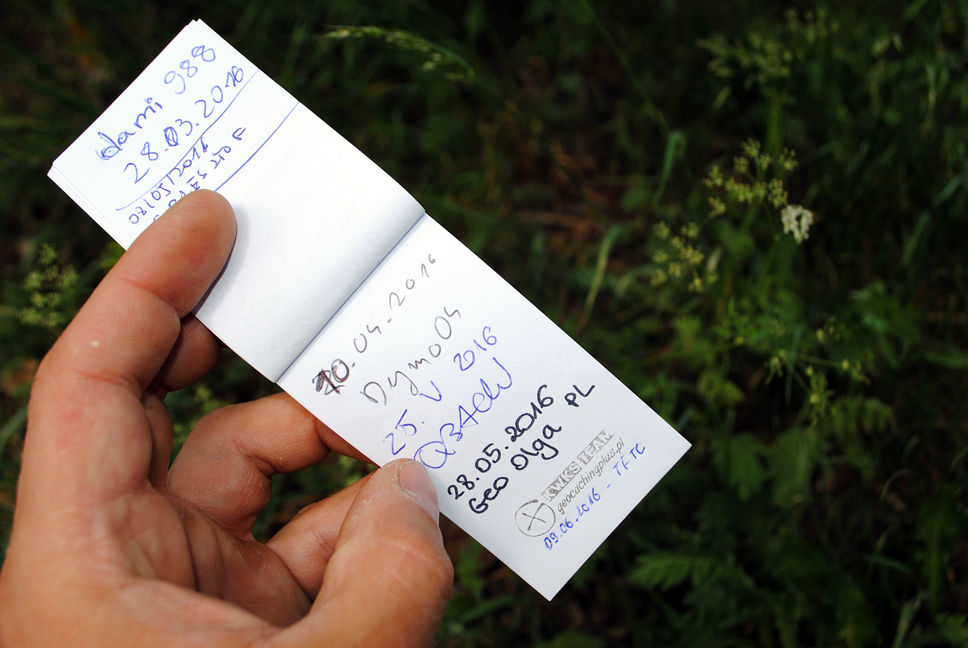 dami 988
28.03.2016
08/05/2016
10.04.2016
Dymo04
25. V 2016
28.05.2016
Geo Olga PL
KWKS TEAM
geocachingplus.pl
09.06.2016 - TFTC